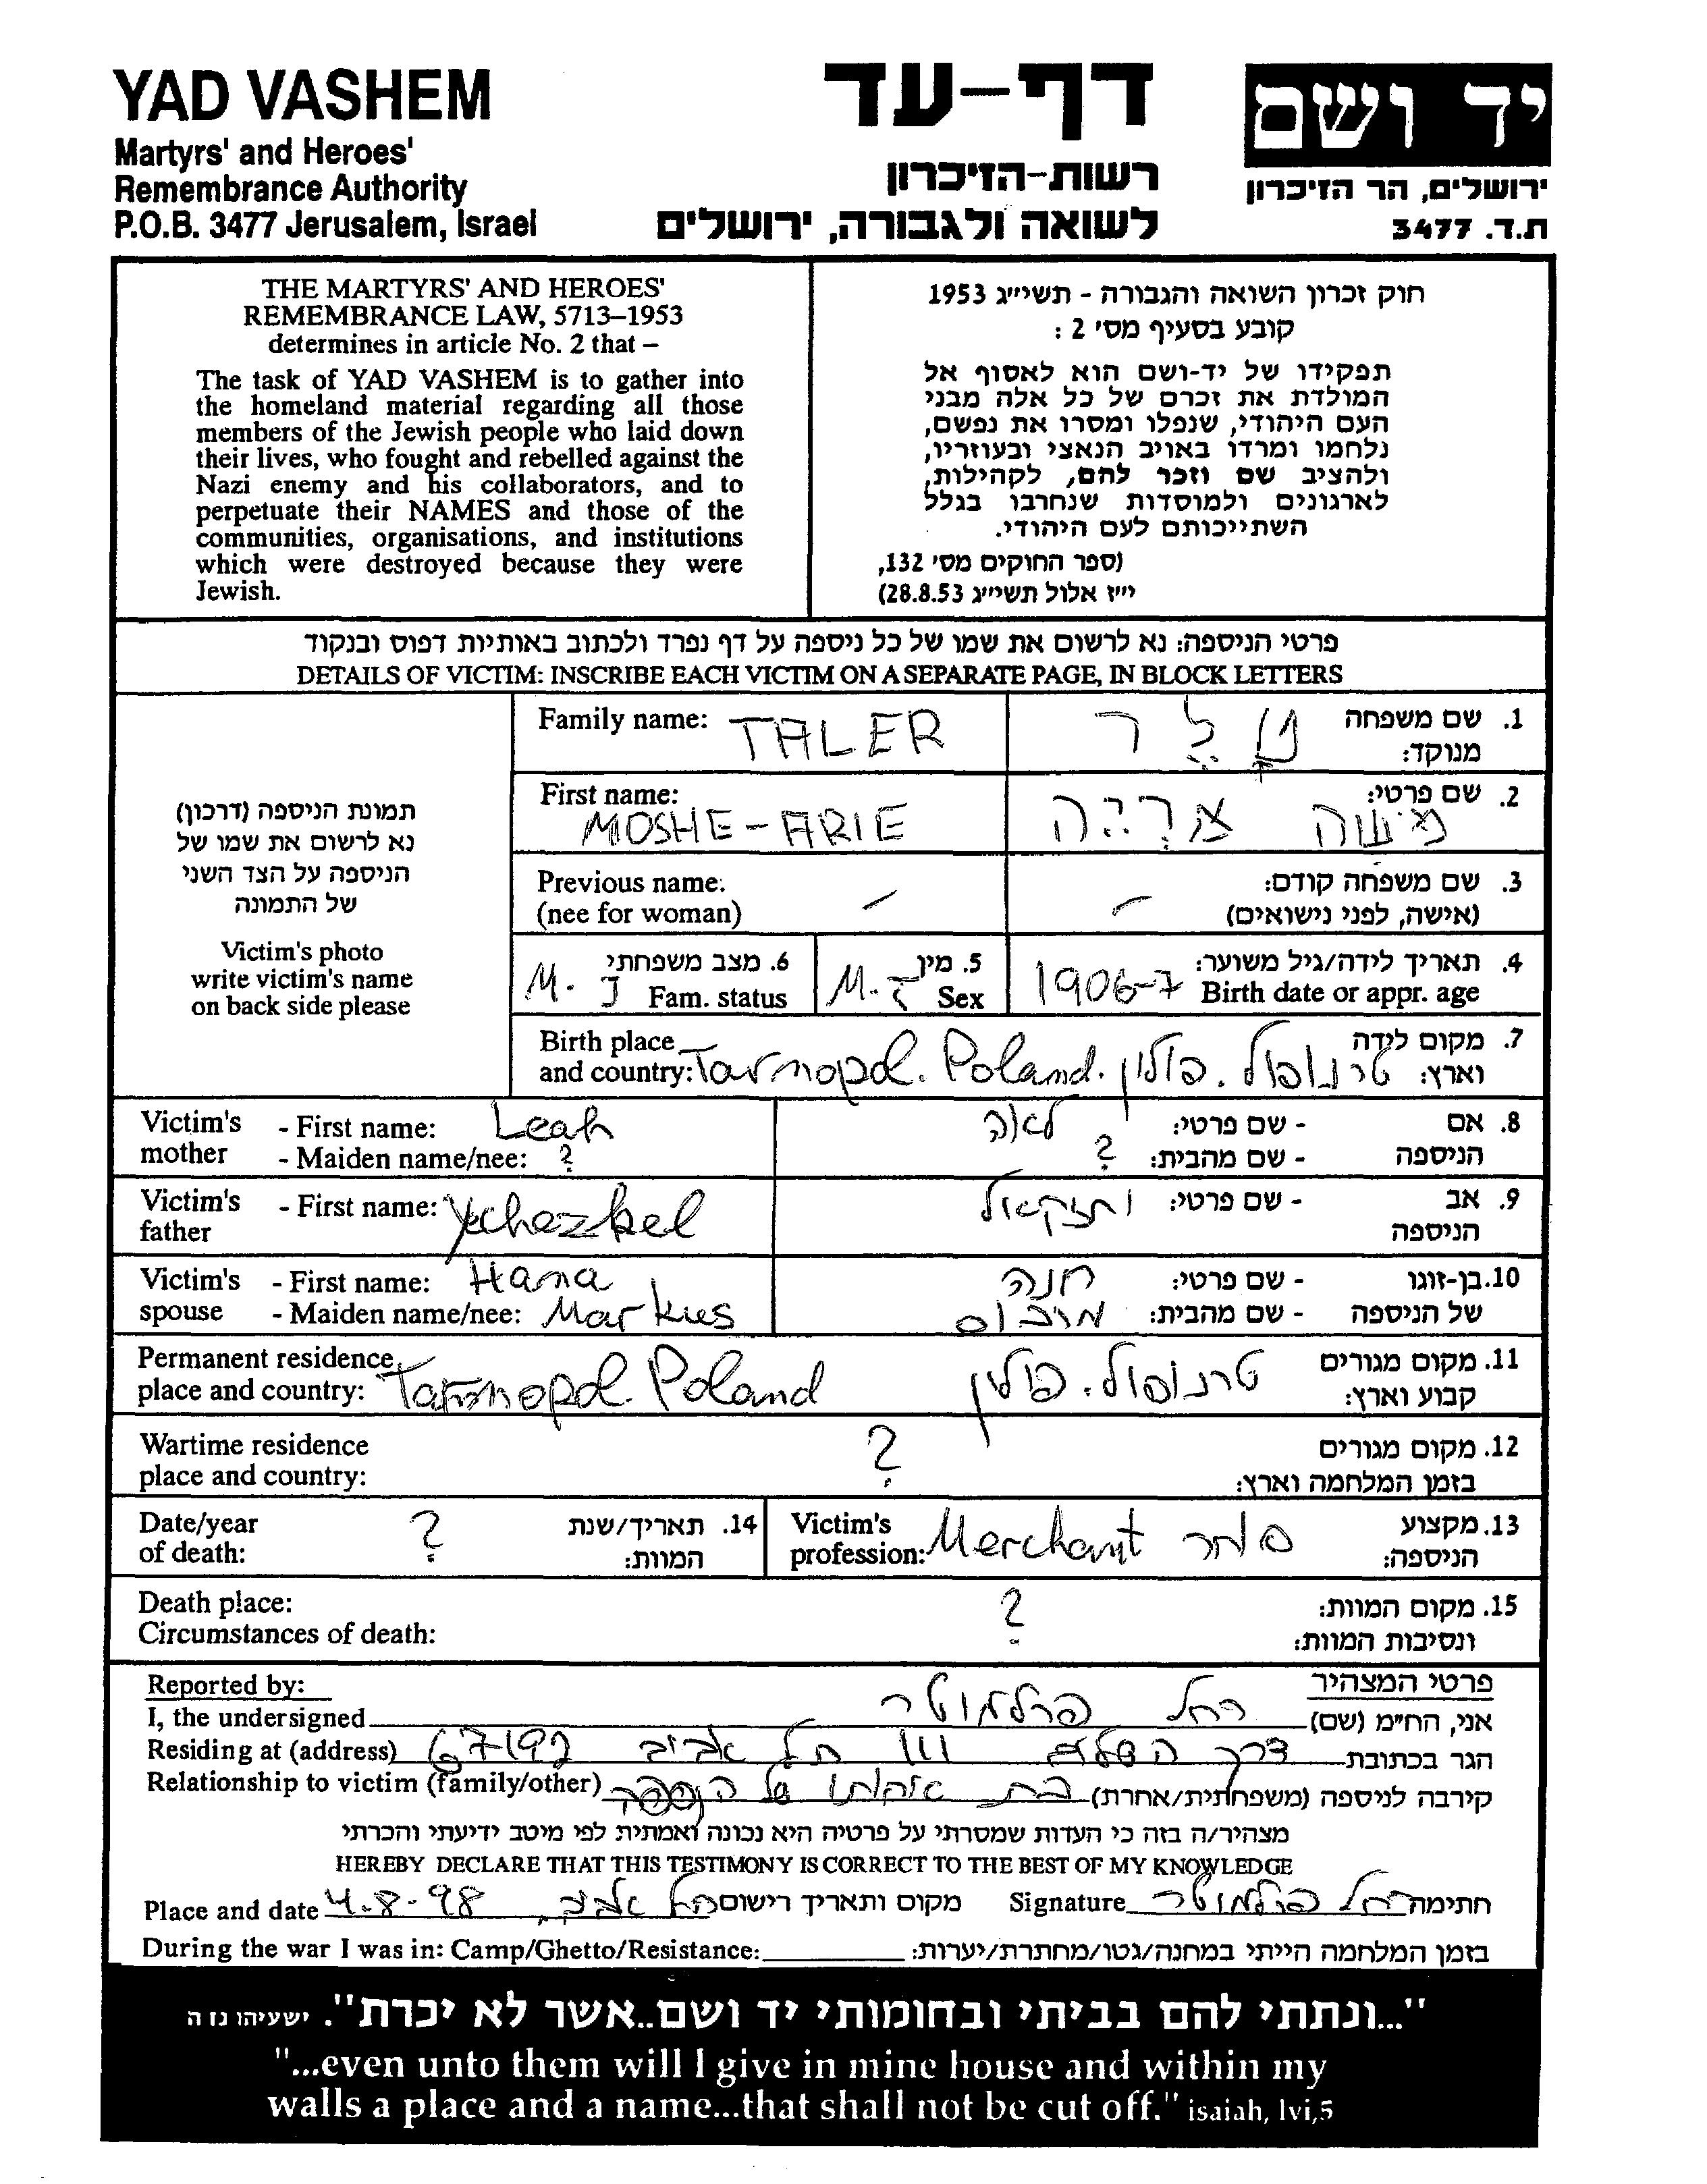 YAD VASHEM
Martyrs' and Heroes'
Remembrance Authority
P.O.B. 3477 Jerusalem, Israel
דף-עד
רשות-הזיכרון
לשואה ולגבורה, ירושלים
יד ושם
ירושלים, הר הזיכרון
ת.ד. 3477
THE MARTYRS' AND HEROES'
REMEMBRANCE LAW, 5713–1953
determines in article No. 2 that –
The task of YAD VASHEM is to gather into
the homeland material regarding all those
members of the Jewish people who laid down
their lives, who fought and rebelled against the
Nazi enemy and his collaborators, and to
perpetuate their NAMES and those of the
communities, organisations, and institutions
which were destroyed because they were
Jewish.
חוק זכרון השואה והגבורה - תשי״ג 1953
קובע בסעיף מס׳ 2 :
תפקידו של יד-ושם הוא לאסוף אל
המולדת את זכרם של כל אלה מבני
העם היהודי, שנפלו ומסרו את נפשם,
נלחמו ומרדו באויב הנאצי ובעוזריו,
ולהציב שם וזכר להם, לקהילות,
לארגונים ולמוסדות שנחרבו בגלל
השתייכותם לעם היהודי.
(ספר החוקים מס׳ 132,
י״ז אלול תשי״ג 28.8.53)
פרטי הניספה: נא לרשום את שמו של כל ניספה על דף נפרד ולכתוב באותיות דפוס ובנקוד
DETAILS OF VICTIM: INSCRIBE EACH VICTIM ON A SEPARATE PAGE, IN BLOCK LETTERS
תמונת הניספה (דרכון)
נא לרשום את שמו של
הניספה על הצד השני
של התמונה
Victim's photo
write victim's name
on back side please
Family name: TALER
1. שם משפחה
מנוקד: טָלֶר
First name: MOSHE-ARIE
2. שם פרטי: מֹשֶה אַרְיֵה
Previous name: –
(nee for woman)
3. שם משפחה קודם: –
(אישה, לפני נישואים)
6. מצב משפחתי M. נ
Fam. status
5. מין M. ז
Sex
4. תאריך לידה/גיל משוער: 1906-7
Birth date or appr. age
Birth place
and country: Tarnopol. Poland.
7. מקום לידה
וארץ: טרנופול. פולין
Victim's mother - First name: Leah
- Maiden name/nee: ?
8. אם הניספה - שם פרטי: לאה
- שם מהבית: ?
Victim's father - First name: Yechezkel
9. אב הניספה - שם פרטי: יחזקאל
Victim's spouse - First name: Hana
- Maiden name/nee: Markus
10. בן-זוגו של הניספה - שם פרטי: חנה
- שם מהבית: מרכוס
Permanent residence
place and country: Tarnopol. Poland
11. מקום מגורים
קבוע וארץ: טרנופול. פולין
Wartime residence
place and country: ?
12. מקום מגורים
בזמן המלחמה וארץ:
Date/year
of death: ?
14. תאריך/שנת
המוות:
Victim's
profession: Merchant
13. מקצוע
הניספה: סוחר
Death place:
Circumstances of death: ?
15. מקום המוות:
ונסיבות המוות:
Reported by:
פרטי המצהיר
I, the undersigned רחל פרלמוטר אני, הח״מ (שם)
Residing at (address) דרך השלום תל אביב 67192 הגר בכתובת
Relationship to victim (family/other) בת אחותו של הניספה קירבה לניספה (משפחתית/אחרת)
מצהיר/ה בזה כי העדות שמסרתי על פרטיה היא נכונה ואמתית לפי מיטב ידיעתי והכרתי
HEREBY DECLARE THAT THIS TESTIMONY IS CORRECT TO THE BEST OF MY KNOWLEDGE
Place and date 4.8.98 תל אביב מקום ותאריך רישום
Signature רחל פרלמוטר חתימה
During the war I was in: Camp/Ghetto/Resistance: בזמן המלחמה הייתי במחנה/גטו/מחתרת/יערות:
"...ונתתי להם בביתי ובחומותי יד ושם..אשר לא יכרת". ישעיהו נז ה
"...even unto them will I give in mine house and within my
walls a place and a name...that shall not be cut off." isaiah, lvi,5